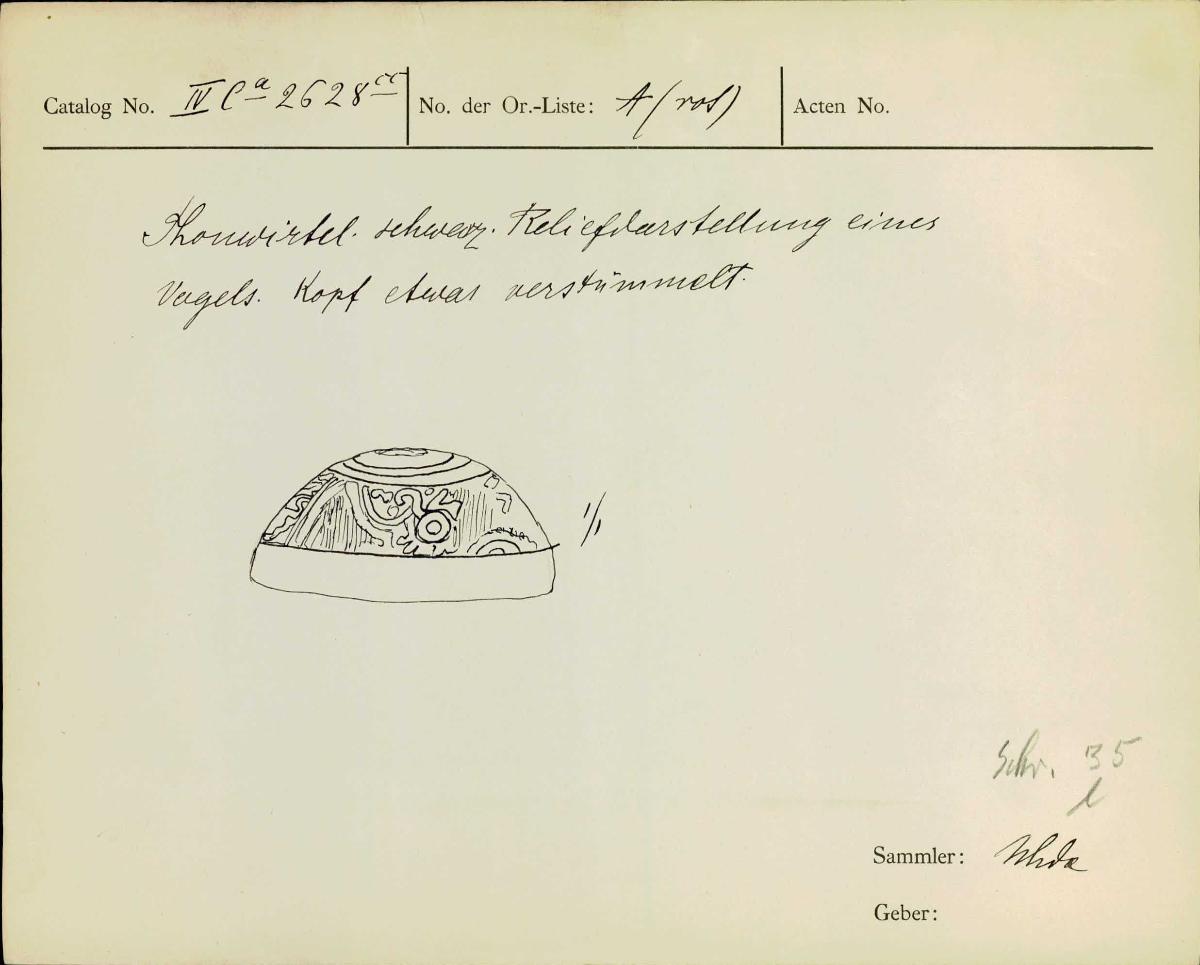 Catalog No. IV Ca 2628 cc No. der Or.-Liste: A (rot) Acten No.
Thonwirtel. schwarz. Reliefdarstellung eines
Vogels. Kopf etwas verstümmelt.
1/1
Schr. 35
l
Sammler: Uhde
Geber: